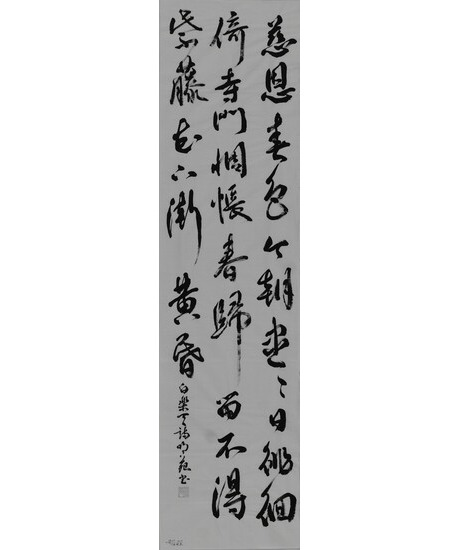 慈恩春色今朝盡〻日徘徊
倚寺門惆悵春歸留不得
紫藤花下漸黄昏
白楽天詩 書